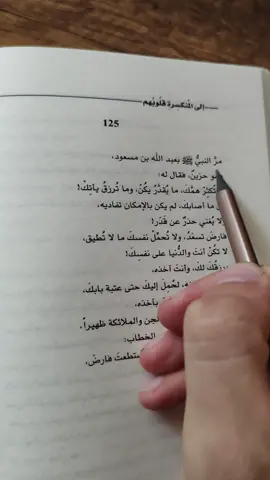 إلى المنكسرة قلوبهم
125
مرَّ النبيُّ ﷺ بعبد الله بن مسعود،
حزينٌ، فقال له:
تُكثِرْ همَّكَ، ما يُقدَّرْ يكُنْ، وما تُرزقْ يأتِكَ!
ما أصابكَ، لم يكن بالإمكان تفاديه،
لا يُغني حذرٌ عن قَدَر!
فارضَ تسعَدْ، ولا تُحمِّلْ نفسكَ ما لا تُطيق،
لا تكُنْ أنتَ والدُّنيا على نفسِكَ!
لكَ، وأنتَ آخذه،
لحُمِلَ إليكَ حتى عتبة بابكَ،
بآخذه،
والملائكة ظهيراً،
الخطاب:
فارضَ،